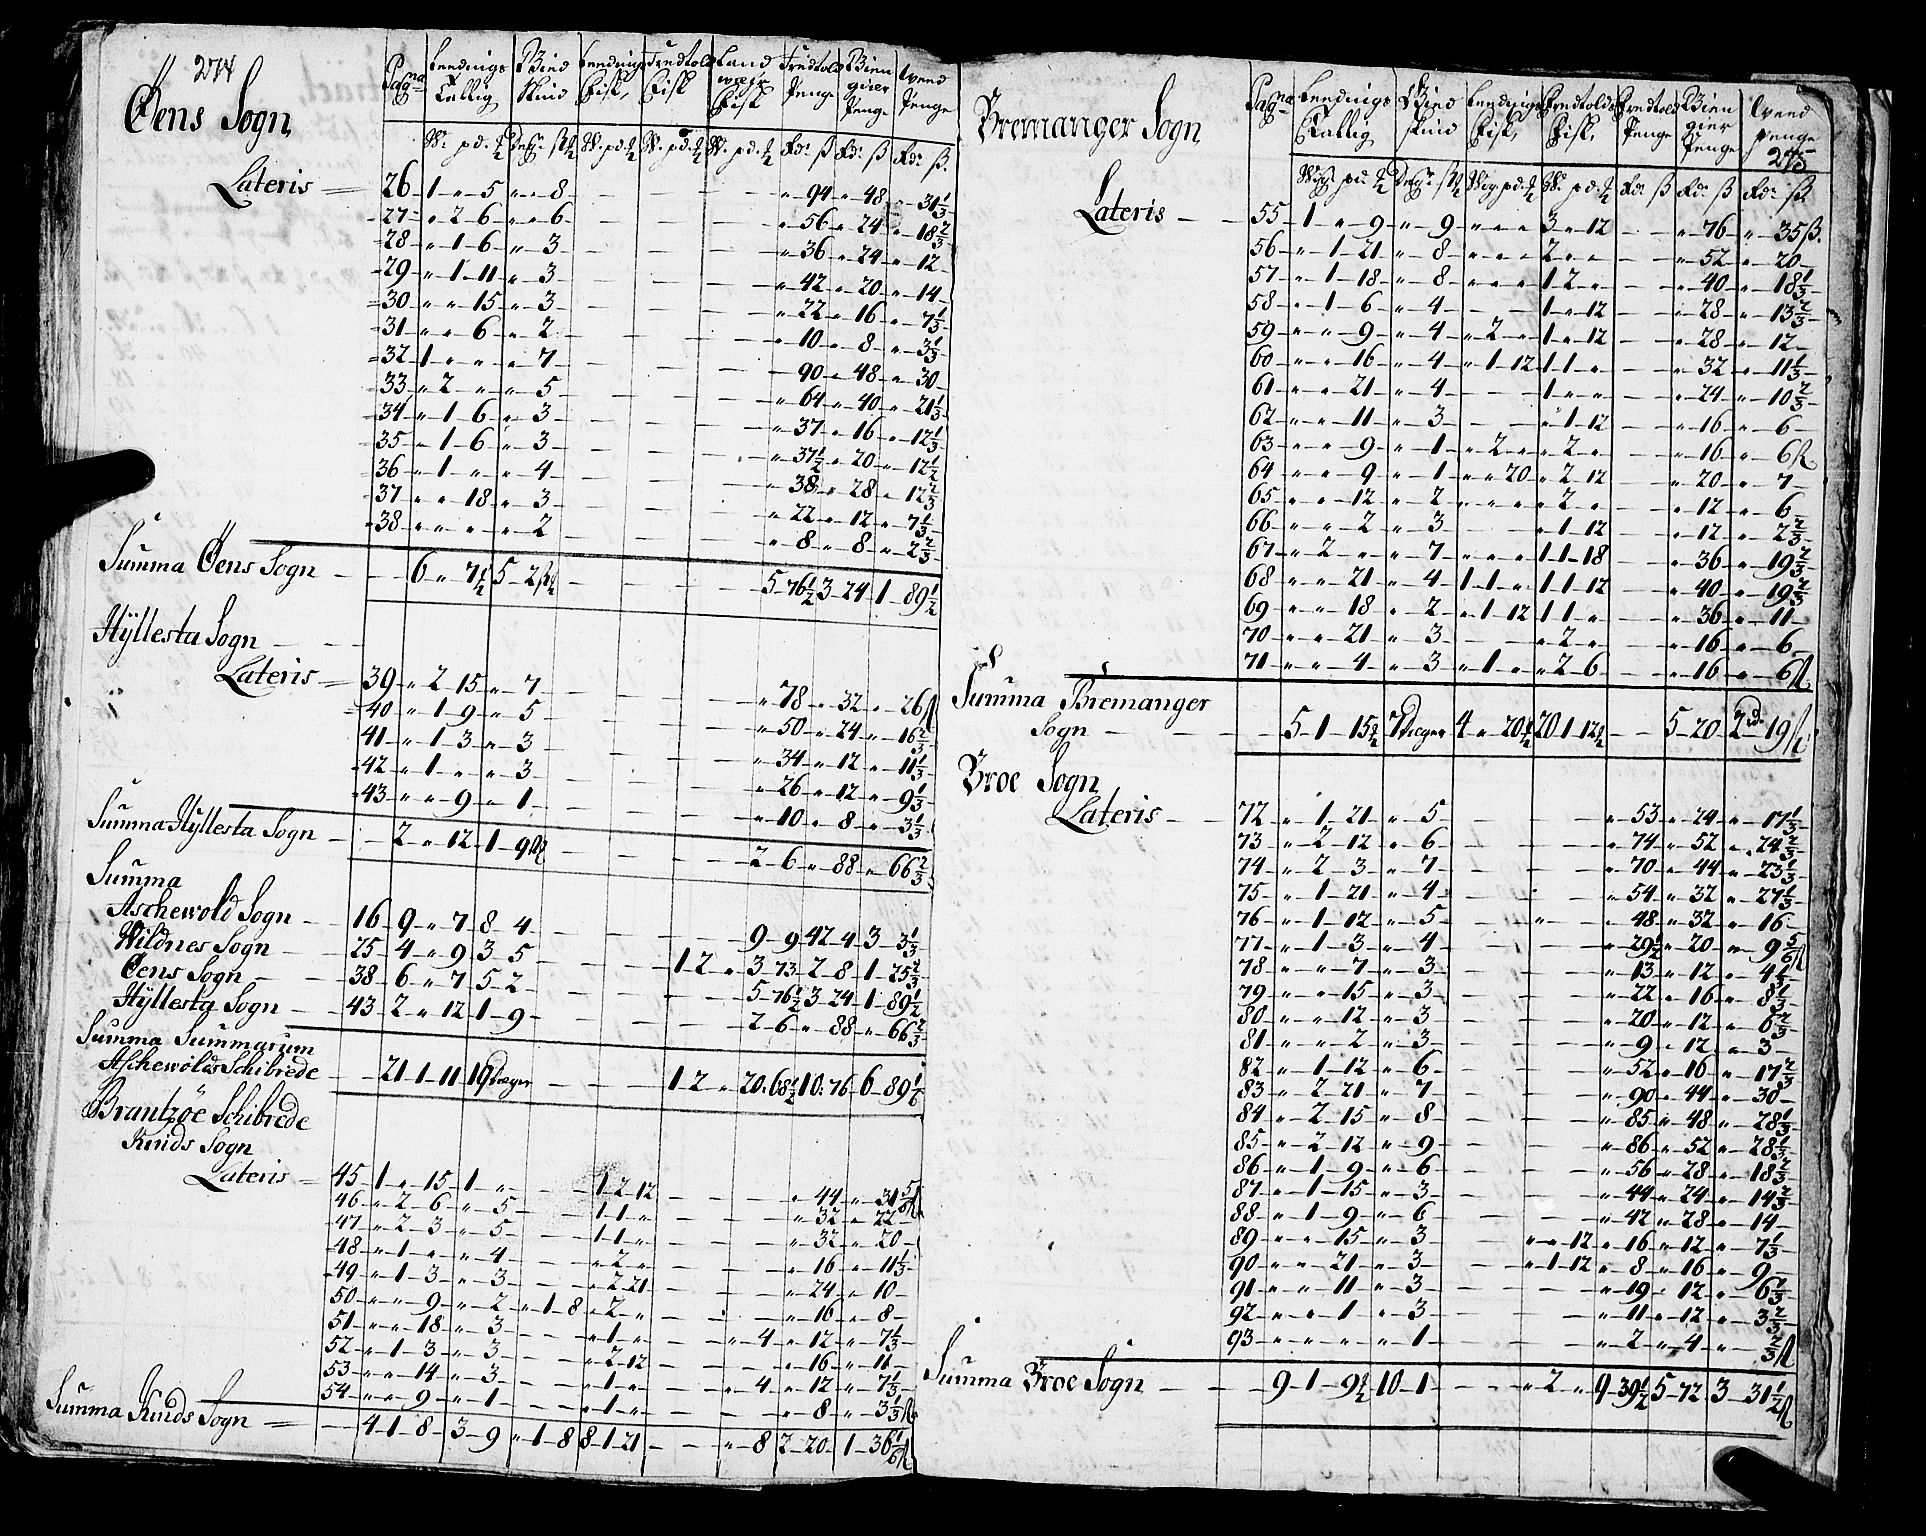 274
Øens Sogn
Pagna
Lateris — 26 1 〃 5 〃 〃 8 — — — 〃 94 〃 48 〃 31 1/3
27 〃 2 6 〃 〃 6 — — — 〃 56 〃 24 〃 18 2/3
28 〃 1 6 〃 3 — — — 〃 36 〃 24 〃 12
29 〃 1 11 〃 3 — — — 〃 42 〃 20 〃 14
30 〃 〃 15 〃 3 — — — 〃 22 〃 16 〃 7 1/3
31 〃 〃 6 〃 2 — — — 〃 10 〃 8 〃 3 1/3
32 1 〃 〃 〃 7 — — — 90 〃 48 〃 30
33 〃 2 〃 〃 5 — — — 〃 64 〃 40 〃 21 1/3
34 〃 1 6 〃 3 — — — 〃 37 〃 16 〃 12 1/3
35 〃 1 6 〃 3 — — — 〃 37 1/2 〃 20 〃 12 1/2
36 〃 1 〃 〃 4 — — — 38 〃 28 〃 12 2/3
37 〃 〃 18 〃 3 — — — 〃 22 〃 12 〃 7 1/3
38 〃 〃 〃 〃 2 — — — 〃 8 〃 8 〃 2 2/3
Summa Øens Sogn — 6 〃 7 1/2 5 2 — — — 5 76 1/2 3 24 1 89 1/2
Hyllesta Sogn —
Lateris — 39 〃 2 15 〃 7 — — — 〃 78 〃 32 〃 26
40 〃 1 9 〃 5 — — — 〃 50 〃 24 〃 16 2/3
41 〃 1 3 〃 3 — — — 〃 34 〃 12 〃 11 1/3
42 〃 1 〃 〃 3 — — — 〃 26 〃 12 〃 9 1/3
43 〃 〃 9 〃 1 — — — 〃 10 〃 8 〃 3 1/3
Summa Hyllesta Sogn — 2 〃 12 1 9 — — — 2 6 〃 88 〃 66 2/3
Summa
Aschewold Sogn — 16 9 〃 7 8 4 — — — 9 9 42 4 3 3 1/3
Wildnes Sogn — 25 4 〃 9 3 5 — — 1 2 〃 3 73 2 8 1 25 2/3
Øens Sogn — 38 6 〃 7 5 2 — — — 5 76 1/2 3 24 1 89 1/2
Hyllesta Sogn — 43 2 〃 12 1 9 — — — 2 6 〃 88 〃 66 2/3
Summa Summarum
Aschewolds Schibrede — 21 1 11 19 Deger — — 1 2 〃 20 68 1/2 10 76 6 89 1/6
Brantzøe Schibrede
Kinds Sogn
Lateris — 45 1 〃 15 1 〃 — 1 2 12 — — 〃 44 〃 31 5/6
46 〃 2 6 〃 5 — 1 1 〃 — — 〃 32 〃 22
47 〃 2 3 〃 5 — 1 1 〃 — — 〃 32 〃 20
48 〃 1 〃 〃 4 — 〃 2 〃 — — 〃 16 〃 11 1/3
49 〃 1 3 〃 3 — 〃 2 21 — — 〃 24 〃 10
50 〃 〃 9 〃 2 〃 1 8 〃 2 〃 — — 〃 16 〃 8
51 〃 〃 18 〃 3 — 〃 1 〃 — 〃 4 〃 12 〃 7 1/3
52 〃 1 3 〃 3 — 〃 2 12 — — 〃 16 〃 11
53 〃 〃 14 〃 3 — 〃 1 〃 — 〃 4 〃 12 〃 7 1/3
54 〃 〃 9 〃 1 — 〃 1 〃 — — 〃 8 〃 3 1/3
Summa Kinds Sogn — 4 1 8 3 9 〃 1 8 8 1 21 — — 〃 8 2 20 1 36 1/6
Bremanger Sogn
Pagna
275
Lateris — 55 1 〃 9 〃 9 〃 〃 〃 3 〃 12 — 〃 76 〃 35 ß.
56 〃 1 21 〃 8 〃 〃 〃 2 〃 〃 — 〃 52 〃 20
57 〃 1 18 〃 8 〃 〃 〃 1 2 〃 — 〃 40 〃 18 1/3
58 〃 1 6 〃 4 — 1 〃 12 — 〃 28 〃 13 2/3
59 〃 〃 9 〃 4 〃 2 〃 1 〃 12 — 〃 28 〃 12
60 〃 〃 16 〃 4 〃 1 12 1 1 〃 — 〃 32 〃 11 1/3
61 〃 〃 21 〃 4 — 1 〃 〃 — 〃 24 〃 10 2/3
62 〃 〃 11 〃 3 — 〃 1 12 — 〃 16 〃 6
63 〃 〃 9 〃 1 〃 2 〃 〃 2 〃 — 〃 16 〃 6
64 〃 〃 9 〃 1 〃 〃 20 〃 2 12 — 〃 20 〃 7
65 〃 〃 12 〃 2 〃 〃 〃 〃 2 〃 — 〃 12 〃 6
66 〃 〃 2 〃 3 — 〃 1 12 — 〃 12 〃 2 2/3
67 〃 2 〃 〃 7 〃 〃 〃 1 1 18 — 〃 36 〃 19 2/3
68 〃 〃 21 〃 4 1 1 〃 1 1 12 — 〃 40 〃 19 2/3
69 〃 〃 18 〃 2 〃 1 12 1 1 〃 — 〃 36 〃 11
70 〃 〃 21 〃 3 — 〃 2 〃 — 〃 16 〃 6
71 〃 〃 4 〃 3 〃 1 〃 〃 2 6 — 〃 16 〃 6
Summa Bremanger
Sogn — 5 1 15 1/2 7 Deger 4 〃 20 1/2 20 1 12 1/2 — 5 20 2 19
Broe Sogn
Lateris — 72 〃 1 21 〃 5 — — 〃 53 〃 24 〃 17 1/3
73 〃 2 12 〃 6 — — 〃 74 〃 52 〃 24 2/3
74 〃 2 3 〃 7 — — 〃 70 〃 44 〃 23 1/3
75 〃 1 21 〃 4 — — 〃 54 〃 32 〃 27 1/3
76 〃 1 12 〃 5 — 〃 — 〃 48 〃 32 〃 16
77 〃 1 3 〃 4 — — 〃 29 1/2 〃 20 〃 9 5/6
78 〃 〃 7 〃 3 — — 〃 13 〃 12 〃 4 1/3
79 〃 〃 15 〃 3 — — 〃 22 〃 16 〃 8 1/3
80 〃 〃 12 〃 3 — — 〃 20 〃 12 〃 6 2/3
81 〃 〃 2 〃 3 — — 〃 9 〃 12 〃 3
82 〃 1 12 〃 6 — — 〃 52 〃 16 〃 17 2/3
83 〃 2 21 〃 7 — — 〃 90 〃 44 〃 30
84 〃 2 15 〃 8 — — 〃 85 〃 48 〃 28 1/3
85 〃 2 12 〃 9 — — 〃 86 〃 52 〃 28 1/3
86 〃 1 9 〃 6 — — 〃 56 〃 28 〃 18 2/3
87 〃 1 15 〃 3 — — 〃 44 〃 24 〃 14 2/3
88 〃 1 9 〃 6 — — 〃 42 〃 28 〃 14
89 〃 〃 15 〃 3 — 〃 〃 12 〃 16 〃 12 〃 7 1/3
90 〃 〃 21 〃 3 — 〃 1 12 〃 8 〃 16 〃 9
91 〃 〃 11 〃 3 — — 〃 19 〃 12 〃 6 1/3
92 〃 〃 1 〃 3 — — 〃 11 〃 12 〃 3 2/3
93 〃 〃 〃 〃 1 — — 〃 2 〃 4 〃 2/3
Summa Broe Sogn — 9 1 9 1/2 10 1 — 〃 2 〃 9 39 1/2 5 72 3 31 1/2